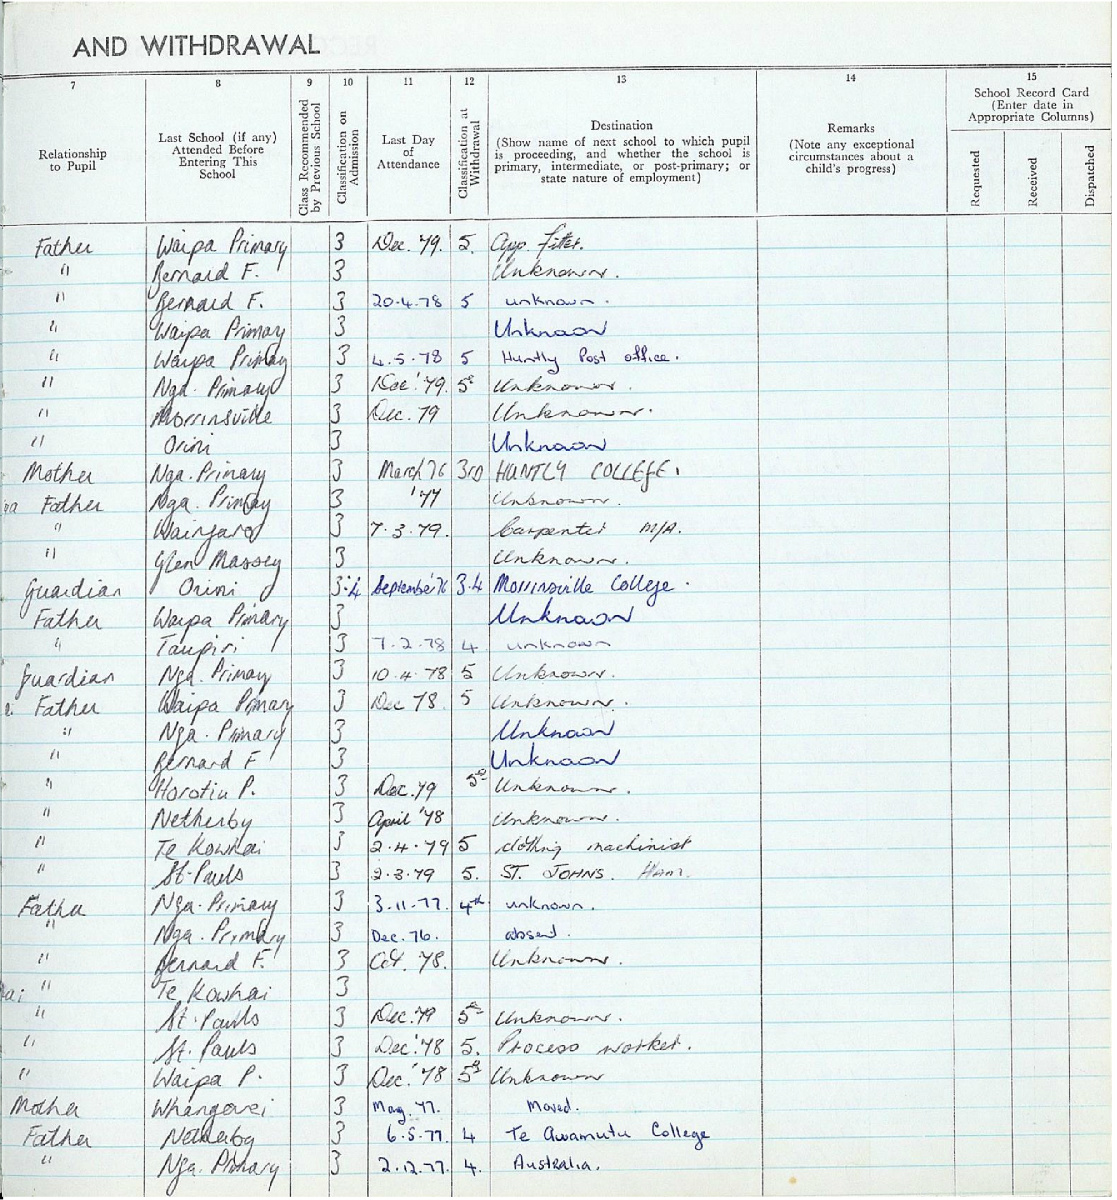 AND WITHDRAWAL
7 8 9 10 11 12 13 14 15
Relationship to Pupil
Last School (if any) Attended Before Entering This School
Class Recommended by Previous School
Classification on Admission
Last Day of Attendance
Classification at Withdrawal
Destination (Show name of next school to which pupil is proceeding, and whether the school is primary, intermediate, or post-primary; or state nature of employment)
Remarks (Note any exceptional circumstances about a child's progress)
School Record Card (Enter date in Appropriate Columns)
Requested
Received
Dispatched
Father Waipa Primary 3 Dec. '79. 5. App. Fitter.
" Bernard F. 3 Unknown.
" Bernard F. 3 20.4.78 5 unknown.
" Waipa Primary 3 Unknown
" Waipa Primary 3 4.5.78 5 Huntly Post office.
" Nga. Primary 3 Dec '79. 5 Unknown.
" Morrinsville 3 Dec. 79 Unknown.
" Orini 3 Unknown
Mother Nga. Primary 3 March 76 3rd HUNTLY COLLEGE.
Father Nga. Primary 3 '77 Unknown.
" Waingaro 3 7.3.79. Carpenter M/A.
" Glen Massey 3 Unknown.
Guardian Orini 3.4 September '76 3.4 Morrinsville College.
Father Waipa Primary 3 Unknown
" Taupiri 3 7.2.78 4 unknown
Guardian Nga. Primary 3 10.4.78 5 Unknown.
Father Waipa Primary 3 Dec 78. 5 Unknown.
" Nga. Primary 3 Unknown
" Bernard F 3 Unknown
" Horotiu P. 3 Dec. 79 5 Unknown.
" Netherby 3 April '78 Unknown.
" Te Kowhai 3 2.4.79 5 clothing machinist
" St. Pauls 3 2.3.79 5. ST. JOHNS. Ham.
Father Nga. Primary 3 3.11.77. 4th unknown.
" Nga. Primary 3 Dec. 76. absent.
" Bernard F. 3 Oct. 78. Unknown.
" Te Kowhai 3
" St. Pauls 3 Dec. '79 5 Unknown.
" St. Pauls 3 Dec. '78 5. Process worker.
" Waipa P. 3 Dec. '78 5 Unknown
Mother Whangarei 3 May. 77. Moved.
Father Netherby 3 6.5.77. 4 Te Awamutu College
" Nga. Primary 3 2.12.77. 4. Australia.